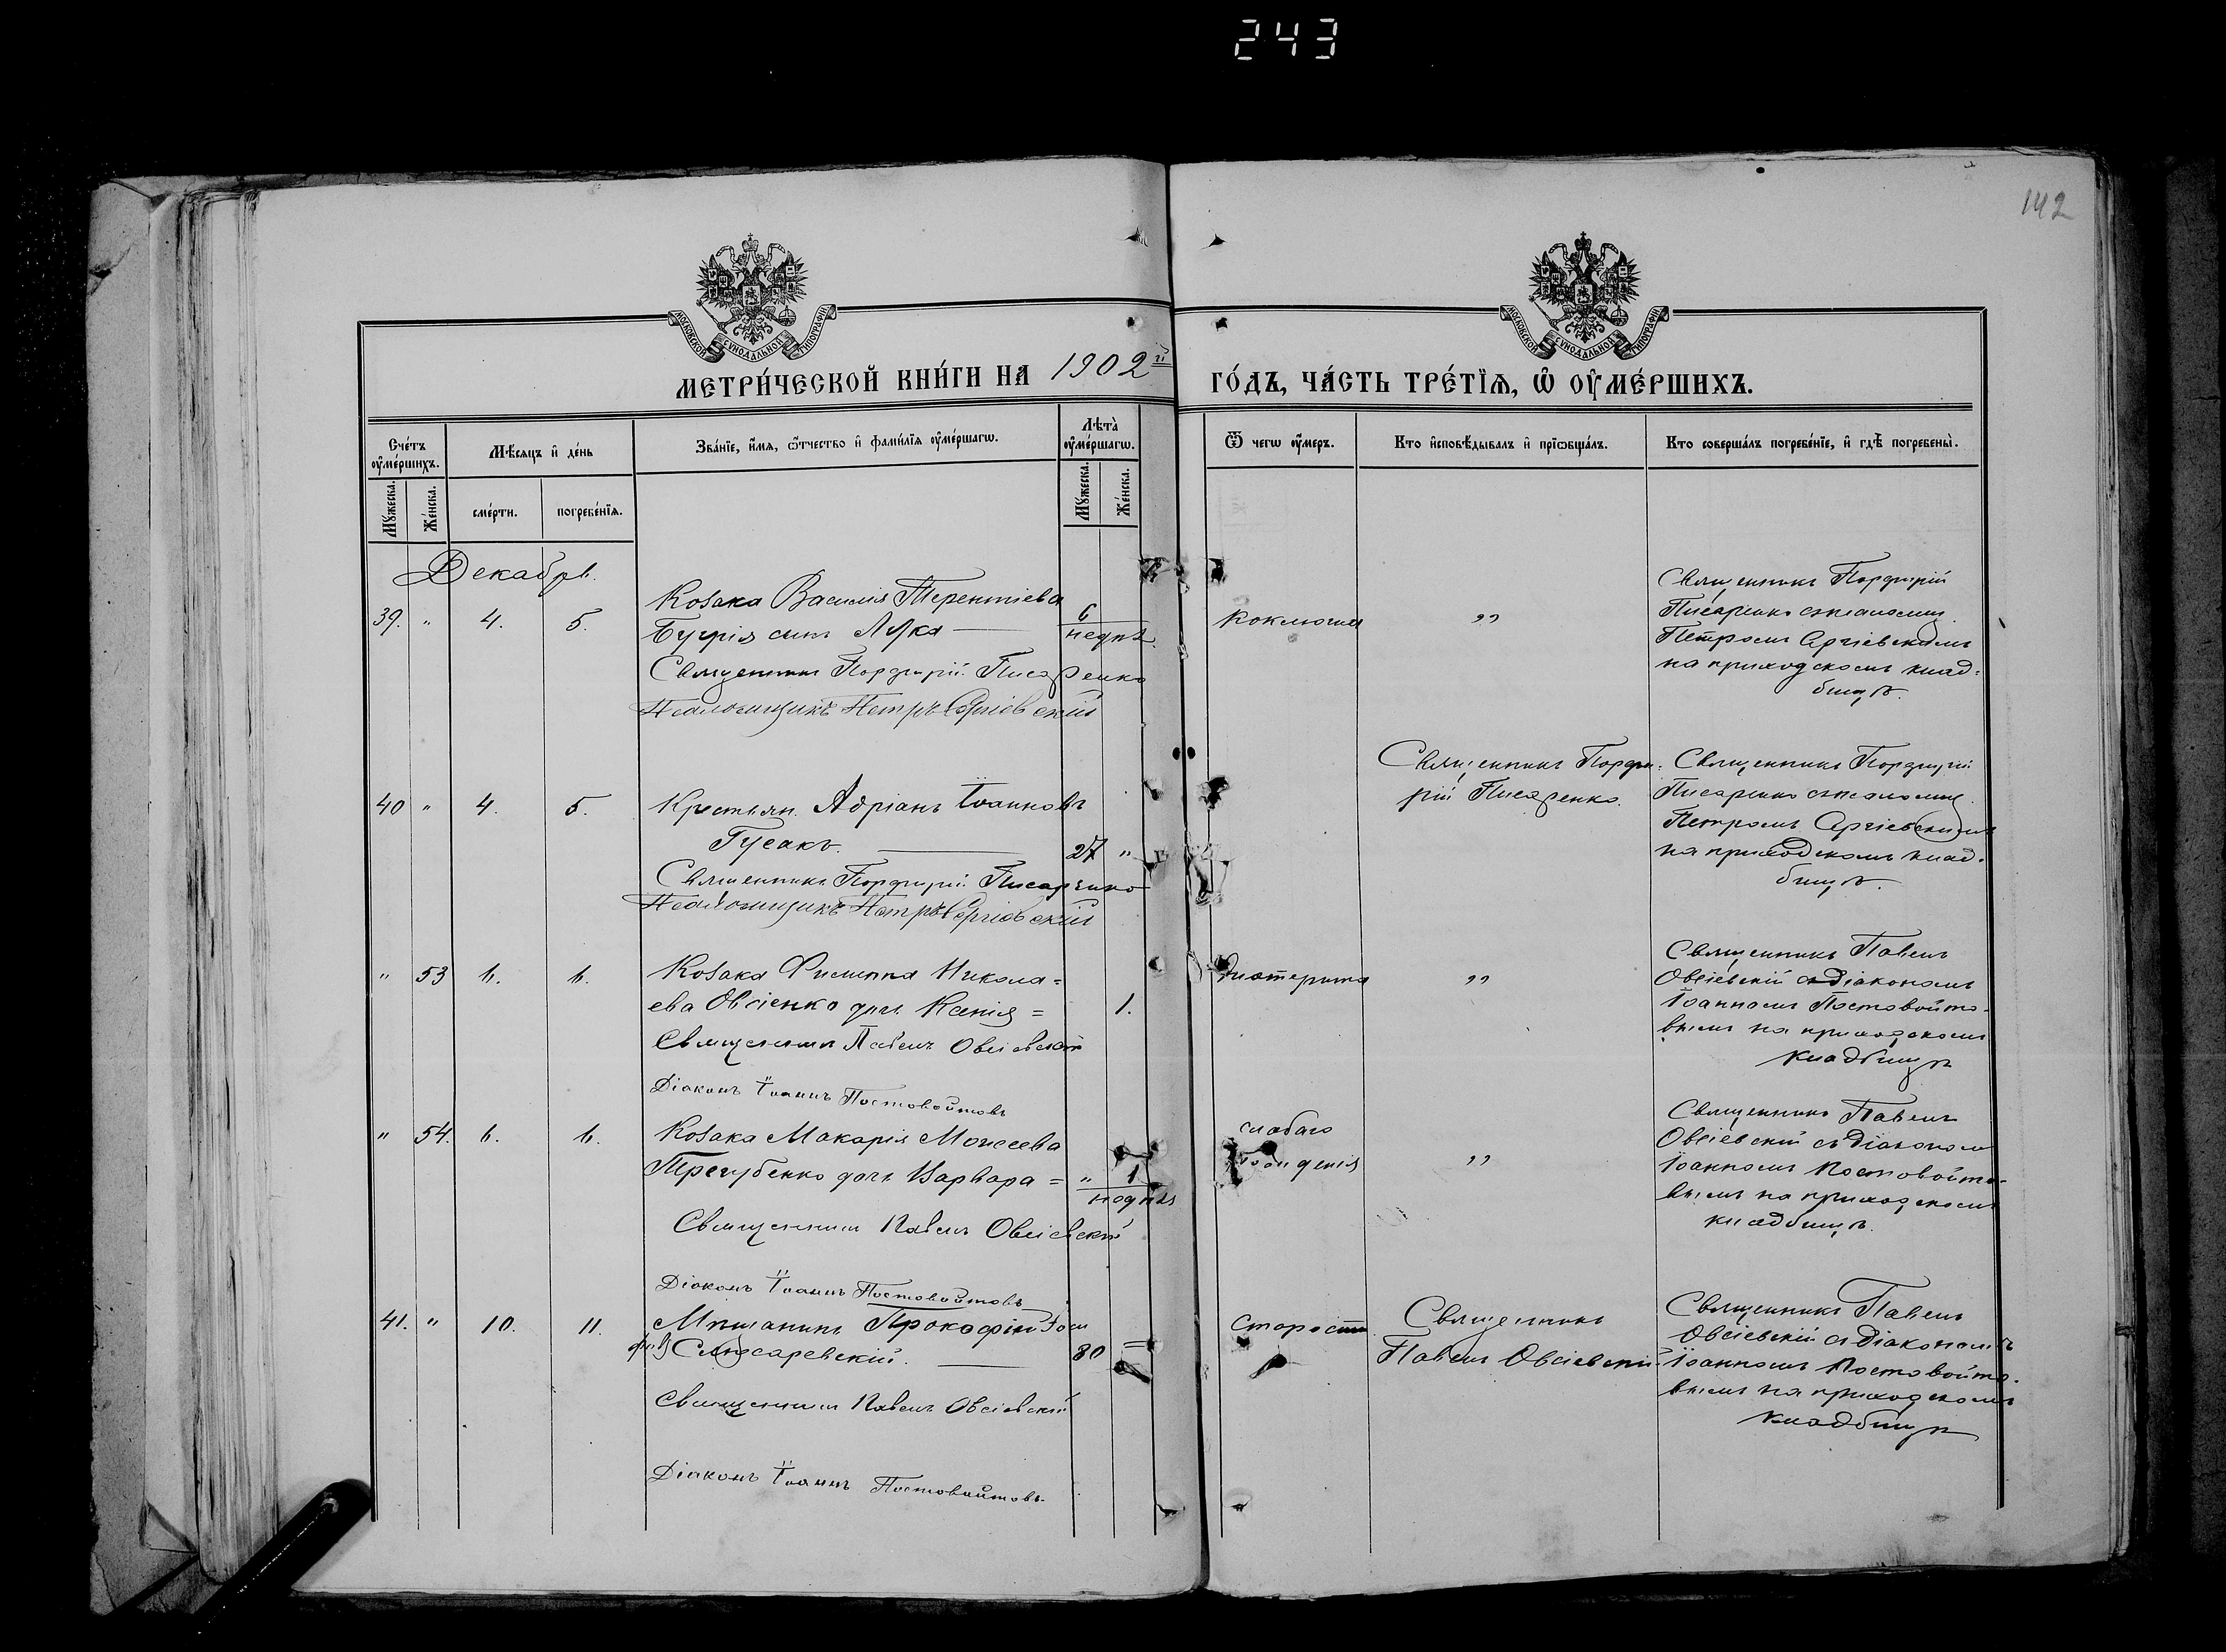 243
142
МОСКОВСКОЙ СѴНОДАЛЬНОЙ ТИПОГРАФІИ
МОСКОВСКОЙ СѴНОДАЛЬНОЙ ТИПОГРАФІИ
МЕТРИ́ЧЕСКОЙ КНИ́ГИ НА 1902й
ГО́ДЪ, ЧА́СТЬ ТРЕ́ТІѦ, Ѡ҆ ОУ҆МЕ́РШИХЪ.
Сче́тъ оу҆ме́ршихъ.
Мꙋ́жеска.
Же́нска.
Мѣ́сяцъ и҆ де́нь
сме́рти.
погребе́нїѧ.
Зва́нїе, и҆́мѧ, ѻ҆́тчество и҆ фами́лїѧ оу҆ме́ршагѡ.
Лѣ́та оу҆ме́ршагѡ.
Мꙋ́жеска.
Же́нска.
Ѿ чегѡ̀ оу҆́меръ.
Кто̀ и҆сповѣ́дывалъ и҆ прїѡбща́лъ.
Кто̀ соверша́лъ погребе́нїе, и҆ гдѣ̀ погребены̀.
Декабрь.
39. " 4. 5.
Козака Василія Терентіева
Бугрія сынъ Лука — 6 недѣл.
Священникъ Порфирій Писаренко
Псаломщикъ Петръ Сергіевскій
Коклюша
"
Священникъ Порфирій
Писаренко съ псаломщ.
Петромъ Сергіевскимъ
на приходскомъ клад-
бищѣ.
40 " 4. 5.
Крестьян. Адріанъ Іоанновъ
Гусакъ. — 27 "
Священникъ Порфирій Писаренко
Псаломщикъ Петръ Сергіевскій
Священникъ Порфи-
рій Писаренко.
Священникъ Порфирій
Писаренко съ псаломщ.
Петромъ Сергіевскимъ
на приходскомъ клад-
бищѣ.
" 53 6. 6.
Козака Филиппа Никола=
ева Овсіенко дочь Ксенія = 1.
Священникъ Павелъ Овсіевскій
Діаконъ Іоаннъ Постовойтовъ
Дифтерита
"
Священникъ Павелъ
Овсіевскій съ Діакономъ
Іоанномъ Постовойто-
вымъ на приходскомъ
кладбищѣ
" 54. 6. 6.
Козака Макарія Моисеева
Трегубенко дочь Варвара = " 1 недѣля
Священникъ Павелъ Овсіевскій
Діаконъ Іоаннъ Постовойтовъ
слабаго
рожденія
"
Священникъ Павелъ
Овсіевскій съ Діакономъ
Іоанномъ Постовойто-
вымъ на приходскомъ
кладбищѣ.
41. " 10. 11.
Мѣщанинъ Прокофій Іоси
фовъ Слюсаревскій. — 80 =
Священникъ Павелъ Овсіевскій
Діаконъ Іоаннъ Постовойтовъ
старости
Священникъ
Павелъ Овсіевскій
Священникъ Павелъ
Овсіевскій съ Діакономъ
Іоанномъ Постовойто-
вымъ на приходскомъ
кладбищѣ